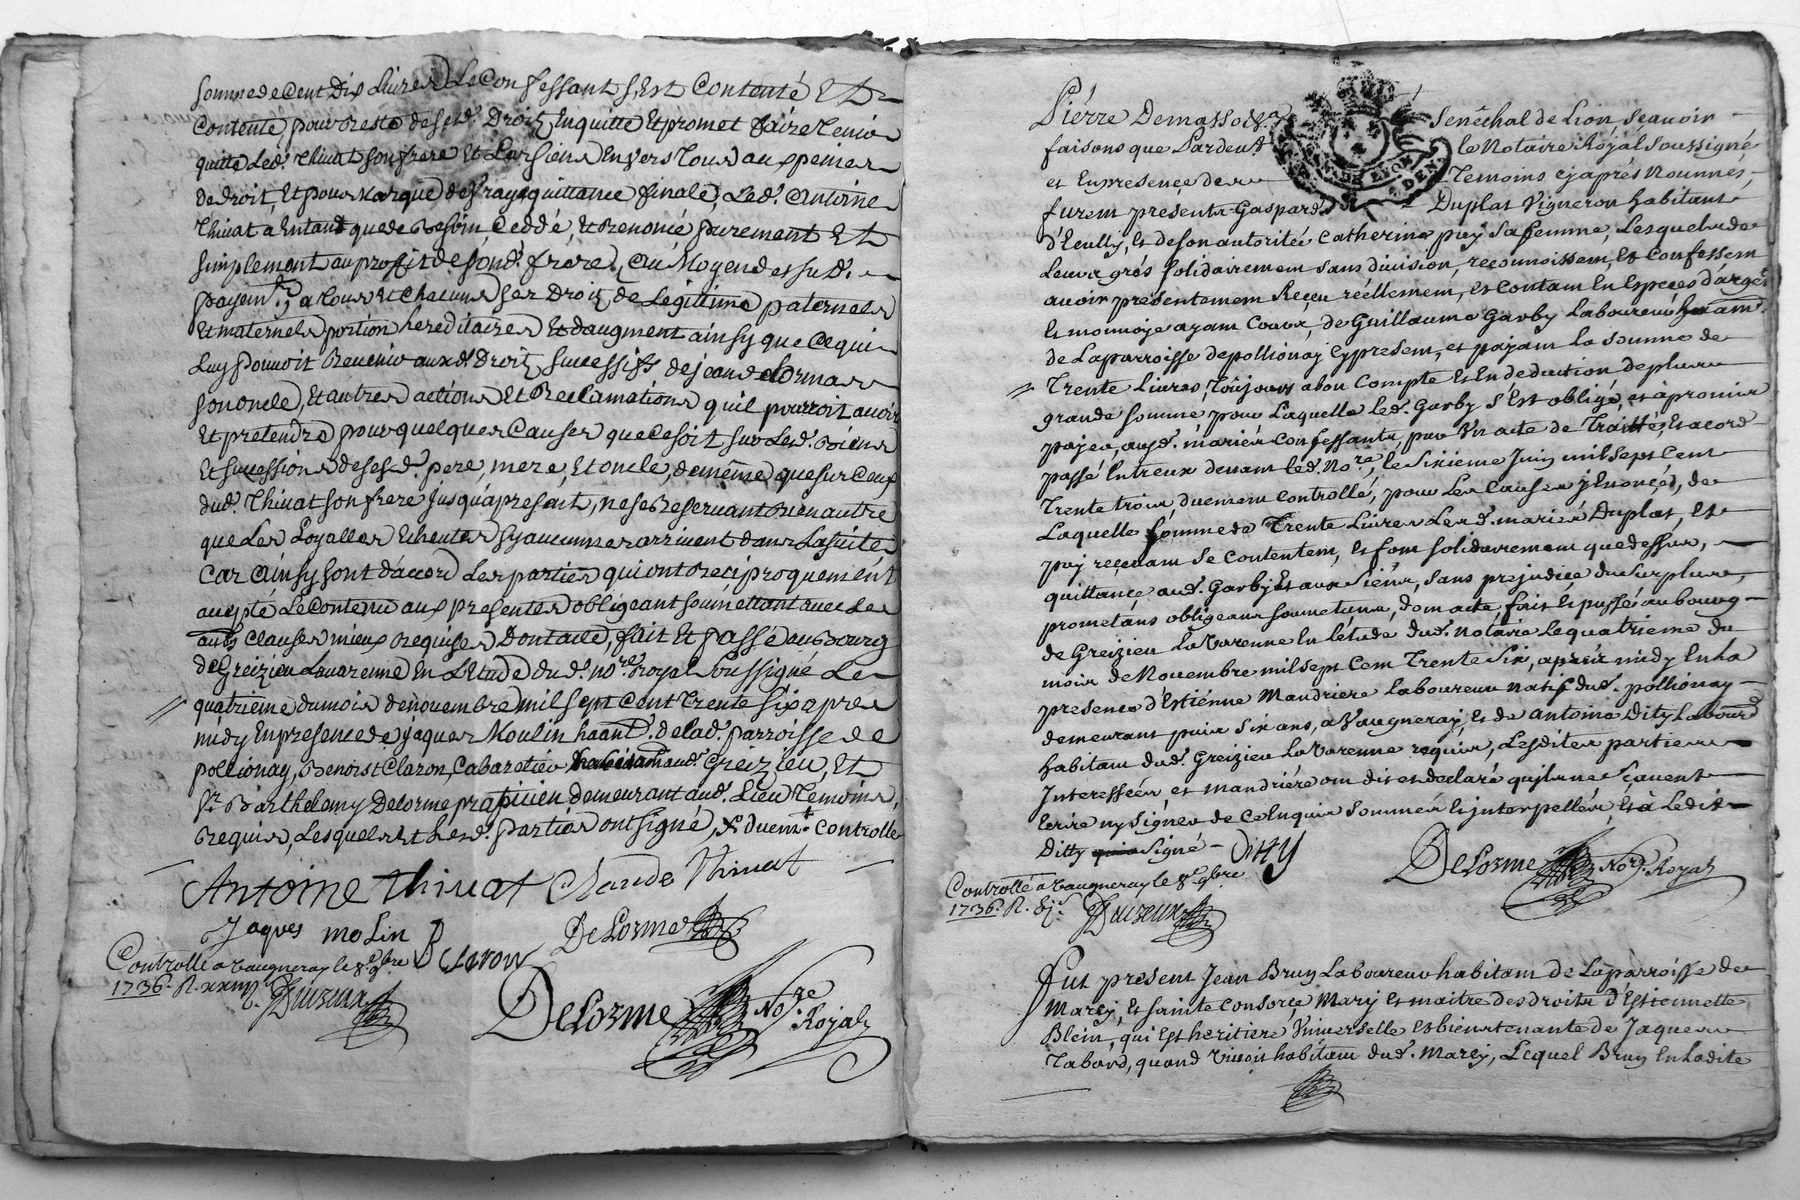 Somme de Cent Dix Livres Le Confessant s'Est Contenté Et
Contente pour Reste de sesd. Droits Enquitte Et promet faire Tenir
quitte Led. Thivat son frere Et Les siens Envers Tous aux peines
de droit, Et pour Marque de fraye quittance finale, Led. Antoine
Thivat a Entant que de Besoin, Ceddé, Et Renoncé purement Et
simplement au proffit de sond. frere, Au Moyen des susd.
payemts, a tous et Chacuns ses Droits de Legitime paternels
Et maternels portion hereditaires Et daugment ainsy que Ce qui
Luy pouvoit Revenir auxd. Droits successifs de jean delorma
son oncle, Et autres actions Et Reclamations quil pourroit avoir
Et pretendre pour quelques Causes que Ce soit sur Lesd. Biens
Et successions de sesd. pere, mere, Et oncle, de même que sur Ceux
dud. Thivat son frere jusqu'apresent, ne se Reservant Rien autre
que Les Loyalles Echeutes sy aucunnes arrivent dans La suitte
Car Ainsy sont d'accord Les parties qui ont Reciproquement
accepté Le Contenu aux presentes obligeant soumettant avec Les
auts Clauses mieux Requises Dont acte, fait Et passé au Bourg
de Greizieu Lavarenne En L'Etude dud. nore royal soussigné Le
quatrieme du mois de novembre mil sept Cent Trente six apres
midy En presence de jaques Moulin haant. de lad. parroisse de
pollionay, Benoist Claron, Cabaretier aud. Greizieu, Et
Sr Barthelemy Delorme praticien demeurant aud. Lieu Temoins,
Requis, Lesquels Et Lesd. parties ont signé, & duemt Controllé
Antoine Thivat Claude Thivat
Jaques molin B Claron DeLorme
Controllé a Vaugneray le 8e 9bre
1736.
DeLorme Nore Royal
Pierre Demasso Senéchal de Lion scavoir
faisons que Pardevt le Notaire Royal Soussigné
et En presence des Temoins cy aprés Nommés,
furent presents Gaspard Duplat Vigneron habitant
d'Eculli, et de son autorité Catherine puy sa femme, Lesquels de
Leurs grés Solidairement sans division, reconnoissent, et Confessent
avoir presentement Reçeu réellement, et Contant En Especes d'argent
et monnoye ayant Cours, de Guillaume Garby Laboureur hatant
de Laparroisse de pollionay Cy present, et payant la Somme de
Trente Livres, Toujours abon Compte et En deduction de plus
grande Somme pour Laquelle led. Garby s'Est obligé, et à promis
payer, ausd. mariés Confessants, par Un acte de Traitté, et acord
passé Entreux devant led. Nore, le Sixieme Juin mil Sept Cent
Trente trois duement Controllé, pour Les Causes y Enoncées, de
Laquelle Somme de Trente Livres Lesd. mariés Duplat, et
puy reçevans se Contentent, et font Solidairement que dessus,
quittance aud. Garby et aux Siens, Sans prejudice du Surplus,
promettans obligeans Soumettans, dont acte, fait et passé au bourg
de Greizieu La Varenne En létude dud. Notaire Le quatrieme du
mois de Novembre mil sept Cent Trente Six, aprés midy En la
presence d'Estienne Mandriere Laboureur Natif dud. pollionay
demeurant puis Six ans, a Vaugneray, et de Antoine Dity Labourr
habitant dud. Greizieu La Varenne requis, Lesdites parties
Interessées, et mandriére ont dit et declaré qu'ils ne Sçavent
Ecrire ny Signer de ce Enquis Sommés et interpellés, et à Ledit
Ditty Signé Ditty
DeLorme Nore Royal
Controllé a Vaugneray le 8e 9bre
1736.
Fut present Jean Bruy Laboureur habitant de Laparroisse de
Marcy, et Sainte Consorce, Mary et maitre des droits d'Estiennette
Blein, qui Est heritiere Universelle et bientenante de Jaques
Tabard, quand Vivoit habitant dud. Marcy, Lequel Bruy En ladite